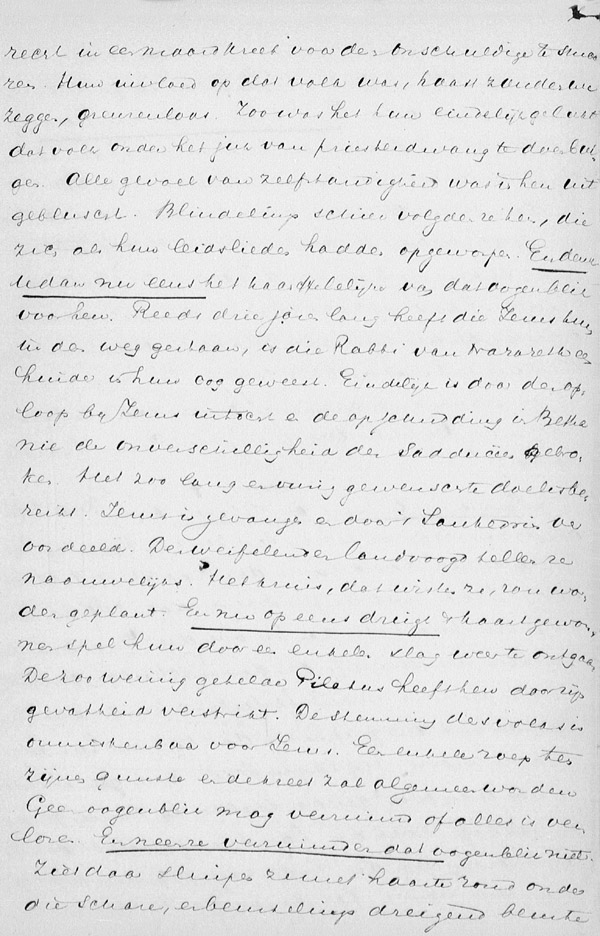 recht in een moordkreet voor den onschuldige te
ren. Hun invloed op dat volk was, haast zonder
zeggen, grenzenloos. Zoo was het hun eindelijk gelukt
dat volk onder het juk van priesterdwang te doen bui-
gen. Alle gevoel van zelfstandigheid was in hen uit
gebluscht. Blindelings schier volgden ze hen, die
zich als hun leidslieden hadden opgeworpen. En denk
u dan nu eens het haast
van dat oogenblik
voor hen. Reeds drie jaren lang heeft die Jezus hun
in den weg gestaan, is die Rabbi van Nazareth een
hinder in hun oog geweest. Eindelijk is door den op-
loop bij Jezus intocht en de opschudding in Betha
nie de onverschilligheid der Sadduceën gebro-
ken. Het zoo lang en vurig gewenschte doel is be-
reikt. Jezus is gevangen en door 't Sanhedrin ver
oordeeld. Den weifelenden landvoogd tellen ze
nauwelijks. Het kruis, dat wisten ze, zou wor-
den geplant. En nu op eens dreigt 't haast gewon-
nen spel hun door een enkelen slag weer te ontgaan.
De zoo weinig getelde Pilatus heeft hen door zijn
gevatheid verstrikt. De stemming des volks is
onmiskenbaar voor Jezus. Een enkele roep ten
zijnen gunste en de kreet zal algemeen worden
Geen oogenblik mag verzuimd of alles is ver
loren. En neen ze verzuimden dat oogenblik niet.
Ziet daar sluipen ze met haaste rond onder
die schare, en beurtelings dreigend